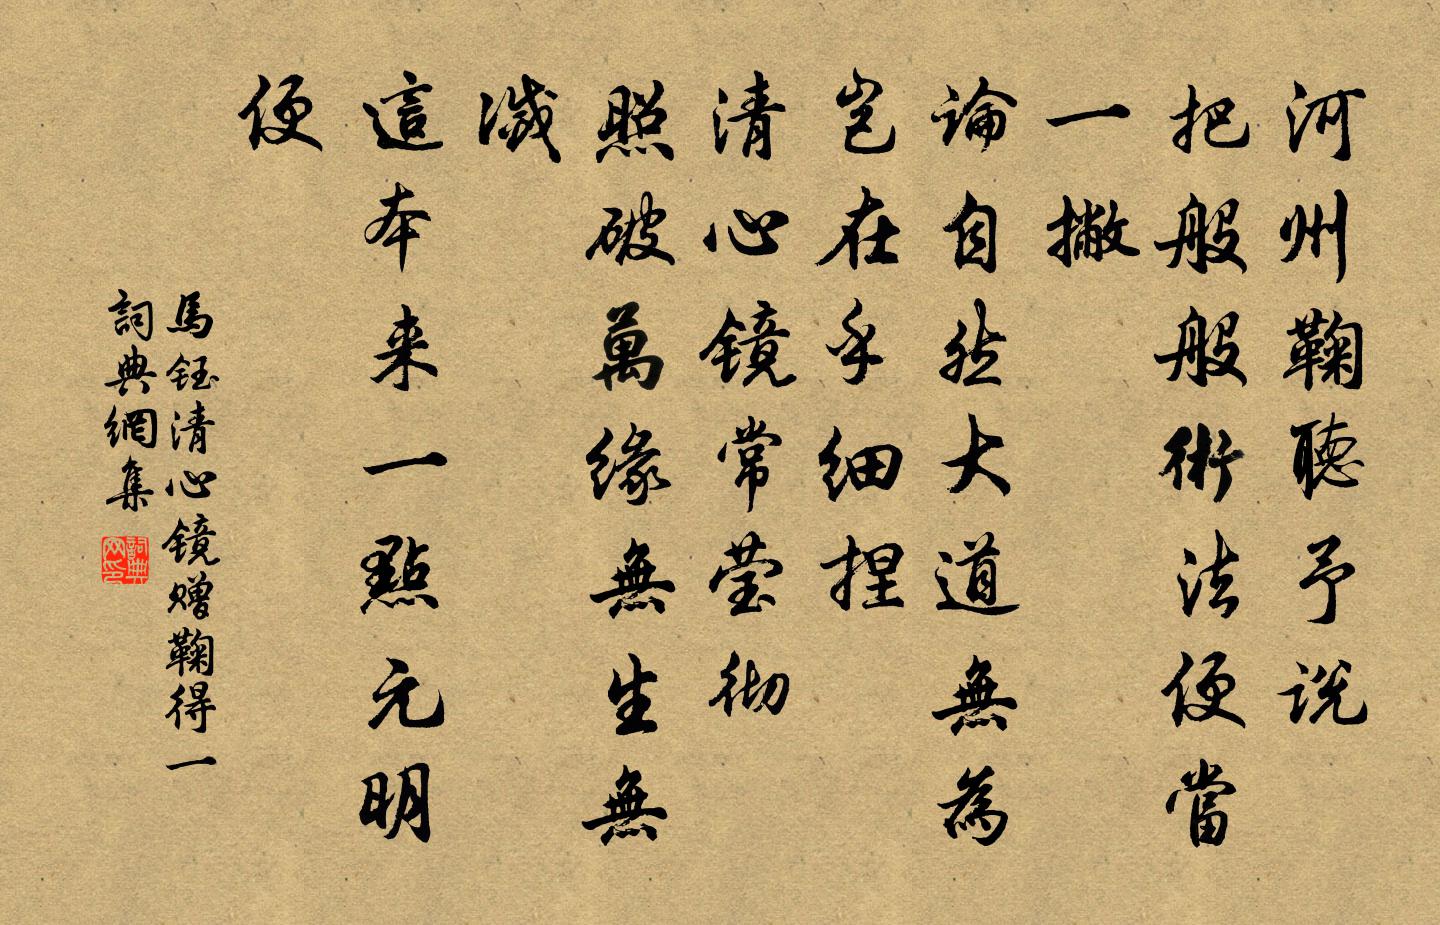 河州鞠聽予説
把般般術法便當
一撇
論自然大道無為
豈在乎细捏
清心镜常莹彻
照破萬緣無生無
滅
這本来一點元明
便
馬钰清心镜赠鞠得一
詞典網集
詞典網印